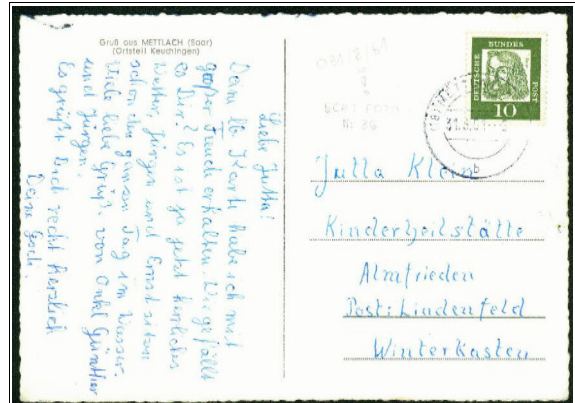 Gruß aus METTLACH (Saar)
(Ortsteil Keuchingen)
Liebe Jutta!
Deine lb. Karte habe ich mit
großer Freude erhalten. Wie gefällt
es Dir? Es ist ja jetzt herrliches
Wetter, Jürgen und Ernst sitzen
schon den ganzen Tag im Wasser.
Viele liebe Grüße von Onkel Günther
und Jürgen.
Es grüßt Dich recht herzlich
Deine
DEUTSCHE BUNDES POST
10
31.8.61
b
Jutta Klein
Kinderheilstätte
Almfrieden
Post: Lindenfeld
Winterkasten